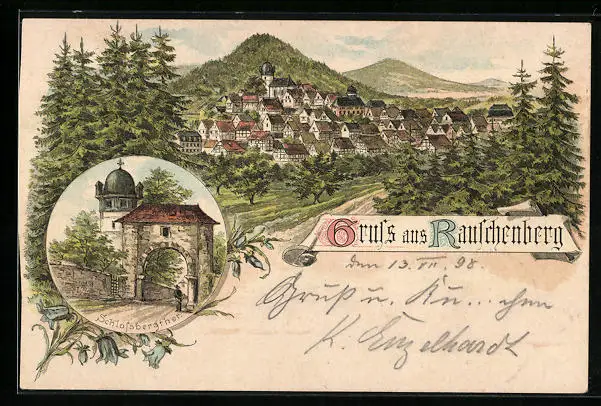 Gruſs aus Rauschenberg
den 13. VII. 98.
Gruß u. Ku...chen
K. Engelhardt
Schloſsbergthor